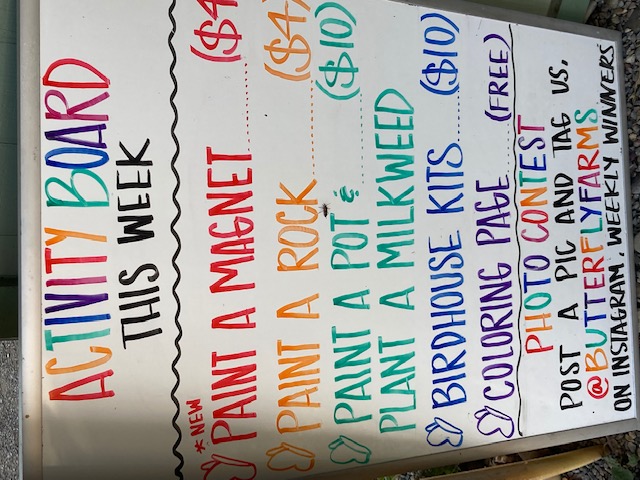 ACTIVITY BOARD
THIS WEEK
*NEW
PAINT A MAGNET ........ ($4)
PAINT A ROCK ........ ($4)
PAINT A POT & ........ ($10)
PLANT A MILKWEED
BIRDHOUSE KITS ..... ($10)
COLORING PAGE ..... (FREE)
PHOTO CONTEST
POST A PIC AND TAG US,
@BUTTERFLYFARMS
ON INSTAGRAM. WEEKLY WINNERS